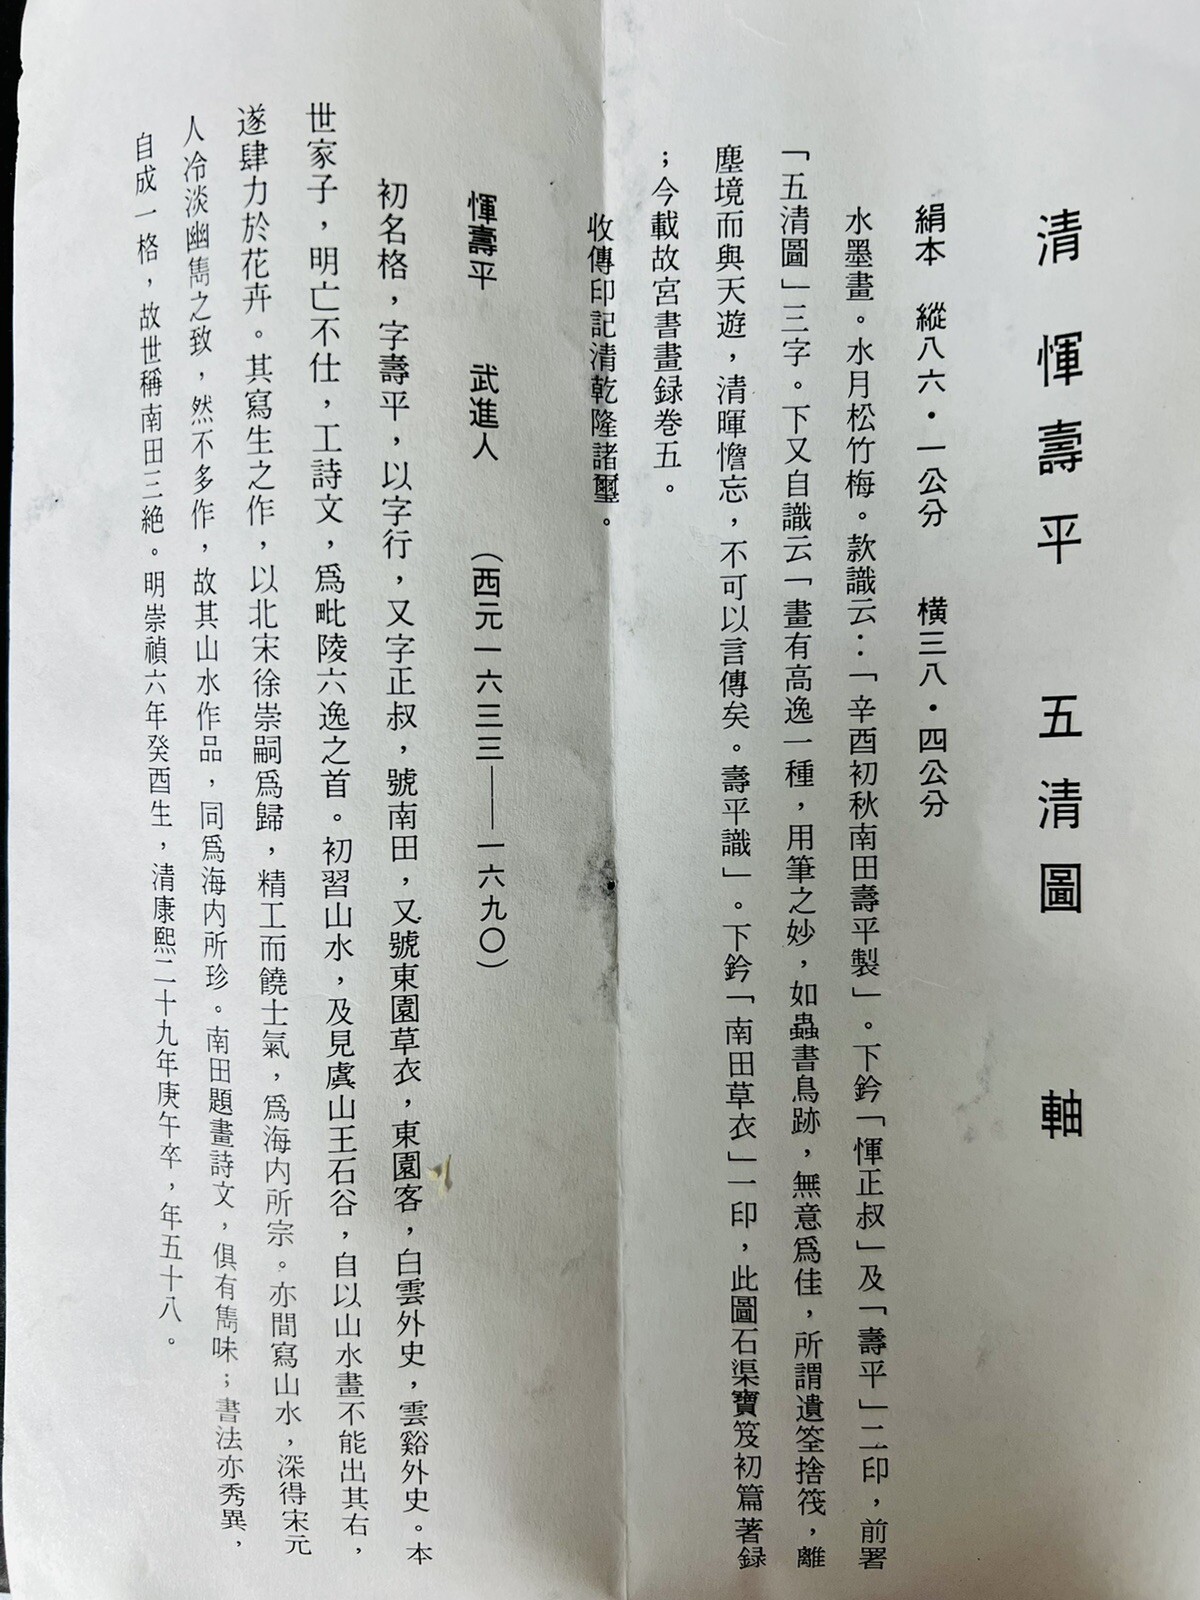 清　惲壽平　五清圖　軸
絹本　縱八六・一公分　橫三八・四公分
水墨畫。水月松竹梅。款識云：「辛酉初秋南田壽平製」。下鈐「惲正叔」及「壽平」二印，前署
「五清圖」三字。下又自識云「畫有高逸一種，用筆之妙，如蟲書鳥跡，無意爲佳，所謂遺筌捨筏，離
塵境而與天遊，清暉憺忘，不可以言傳矣。壽平識」。下鈐「南田草衣」一印，此圖石渠寶笈初篇著録
；今載故宮書畫録卷五。
收傳印記清乾隆諸璽。
惲壽平　武進人　（西元一六三三——一六九〇）
初名格，字壽平，以字行，又字正叔，號南田，又號東園草衣，東園客，白雲外史，雲谿外史。本
世家子，明亡不仕，工詩文，爲毗陵六逸之首。初習山水，及見虞山王石谷，自以山水畫不能出其右，
遂肆力於花卉。其寫生之作，以北宋徐崇嗣爲歸，精工而饒士氣，爲海内所宗。亦間寫山水，深得宋元
人冷淡幽雋之致，然不多作，故其山水作品，同爲海内所珍。南田題畫詩文，俱有雋味；書法亦秀異，
自成一格，故世稱南田三絶。明崇禎六年癸酉生，清康熙二十九年庚午卒，年五十八。